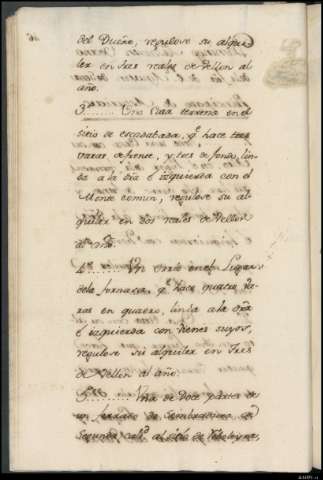 del Dueño, regulose su alqui-
ler en tres reales de vellon al
año.
3.º ........ Una Casa terrena en el
sitio de escadabada, q.e hace tres
varas de frente, y tres de fondo, lin-
da a la dra e izquierda con el
Monte comun, regulose su al-
quiler en dos reales de vellon
al año.
4.º ........ Un Orrio en el Lugar
de la fornaza, q.e hace quatro va-
ras en quadro, linda a la dra
e izquierda con vienes suyos,
regulose su alquiler en tres
de Vellon al año.
5.º ........ Una de doce partes de
un ferrado de sembradura de
segunda cali.d al sitio de